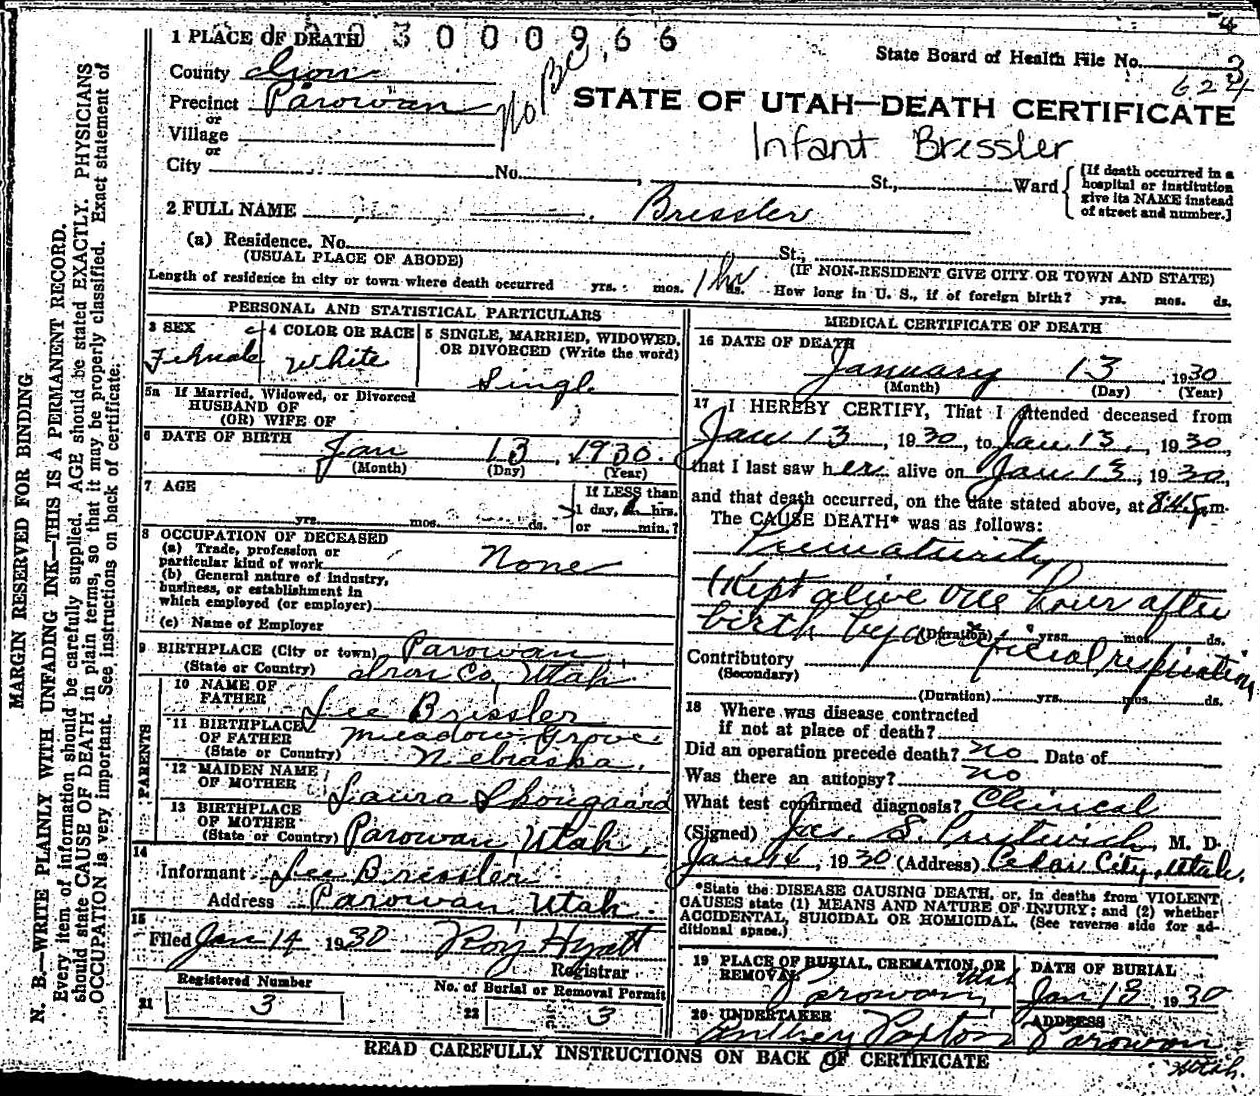 3 0 0 0 9 6 6
4
1 PLACE OF DEATH
State Board of Health File No. 3
624
County Iron
Precinct Parowan
No B C.
STATE OF UTAH—DEATH CERTIFICATE
or
Village
or
Infant Bressler
City No. , St., Ward
[If death occurred in a hospital or institution give its NAME instead of street and number.]
2 FULL NAME Bressler
(a) Residence. No. St.,
(USUAL PLACE OF ABODE) (IF NON-RESIDENT GIVE CITY OR TOWN AND STATE)
Length of residence in city or town where death occurred yrs. mos. 1 hr ds. How long in U. S., if of foreign birth? yrs. mos. ds.
PERSONAL AND STATISTICAL PARTICULARS
3 SEX
Female
4 COLOR OR RACE
White
5 SINGLE, MARRIED, WIDOWED, OR DIVORCED (Write the word)
Single
5a If Married, Widowed, or Divorced
HUSBAND OF
(OR) WIFE OF
6 DATE OF BIRTH
Jan 13, 1930.
(Month) (Day) (Year)
7 AGE
yrs. mos. ds.
If LESS than
1 day, hrs.
or min.?
8 OCCUPATION OF DECEASED
(a) Trade, profession or
particular kind of work None
(b) General nature of industry,
business, or establishment in
which employed (or employer)
(c) Name of Employer
9 BIRTHPLACE (City or town) Parowan
(State or Country) Iron Co, Utah.
PARENTS
10 NAME OF FATHER Lee Bressler
11 BIRTHPLACE OF FATHER (State or Country) Meadow Grove
Nebraska.
12 MAIDEN NAME OF MOTHER Laura Skougaard
13 BIRTHPLACE OF MOTHER (State or Country) Parowan, Utah.
14
Informant Lee Bressler
Address Parowan Utah.
15
Filed Jan 14 1930 Roy Hyatt
Registrar
Registered Number
21 3
No. of Burial or Removal Permit
22 3
MEDICAL CERTIFICATE OF DEATH
16 DATE OF DEATH
January 13, 1930
(Month) (Day) (Year)
17 I HEREBY CERTIFY, That I attended deceased from
Jan 13, 1930, to Jan 13, 1930,
that I last saw her alive on Jan 13, 1930,
and that death occurred, on the date stated above, at 8:45 p m.
The CAUSE DEATH* was as follows:
Prematurity
Kept alive one hour after
birth by artificial respiration
(Duration) yrs. mos. ds.
Contributory
(Secondary)
(Duration) yrs. mos. ds.
18 Where was disease contracted
if not at place of death?
Did an operation precede death? no Date of
Was there an autopsy? no
What test confirmed diagnosis? Clinical
(Signed) Jas. S. Prestwich, M. D.
Jan 14, 1930 (Address) Cedar City, Utah.
*State the DISEASE CAUSING DEATH, or, in deaths from VIOLENT
CAUSES state (1) MEANS AND NATURE OF INJURY; and (2) whether
ACCIDENTAL, SUICIDAL OR HOMICIDAL. (See reverse side for ad-
ditional space.)
19 PLACE OF BURIAL, CREMATION, OR
REMOVAL Utah
Parowan,
DATE OF BURIAL
Jan 13 1930
20 UNDERTAKER
Anthony Paxton
ADDRESS
Parowan
Utah.
READ CAREFULLY INSTRUCTIONS ON BACK OF CERTIFICATE
MARGIN RESERVED FOR BINDING
N. B.—WRITE PLAINLY WITH UNFADING INK—THIS IS A PERMANENT RECORD.
Every item of information should be carefully supplied. AGE should be stated EXACTLY. PHYSICIANS
should state CAUSE OF DEATH in plain terms, so that it may be properly classified. Exact statement of
OCCUPATION is very important. See instructions on back of certificate.